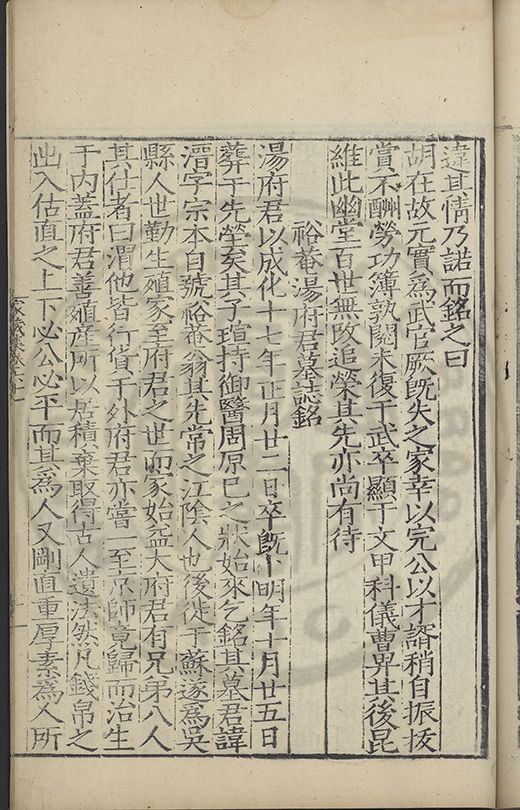 違其情乃諾而銘之曰
胡在故元實為武官厥旣失之家幸以完公以才諝稍自振拔
嘗不酬勞功簿孰閱未復于武卒顯于文甲科儀曹畀其後昆
維此幽堂百世無改追榮其先亦尚有待
裕菴湯府君墓誌銘
湯府君以成化十七年正月廿二日卒旣卜明年十月廿五日
葬于先塋矣其子瑄持御醫周原已之狀始來乞銘其墓君諱
溍字宗本自號裕菴翁其先常之江陰人也後徙于蘇遂為吳
縣人世勤生殖家至府君之世而家始益大府君有兄弟八人
其仕者曰渭他皆行貨于外府君亦嘗一至京師竟歸而治生
于内蓋府君善殖産所以居積棄取得古人遺法然凡錢帛之
出入估直之上下必公必平而其為人又剛直重厚素為人所